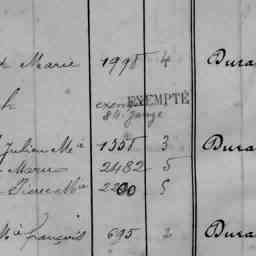 Marie 1998 4 Dura
h exem EXEMPTÉ
Julien Me 1351 3 Dura
Marie 2482 5
Pierre Mie 2200 5
Mie françois 695 2 Dura